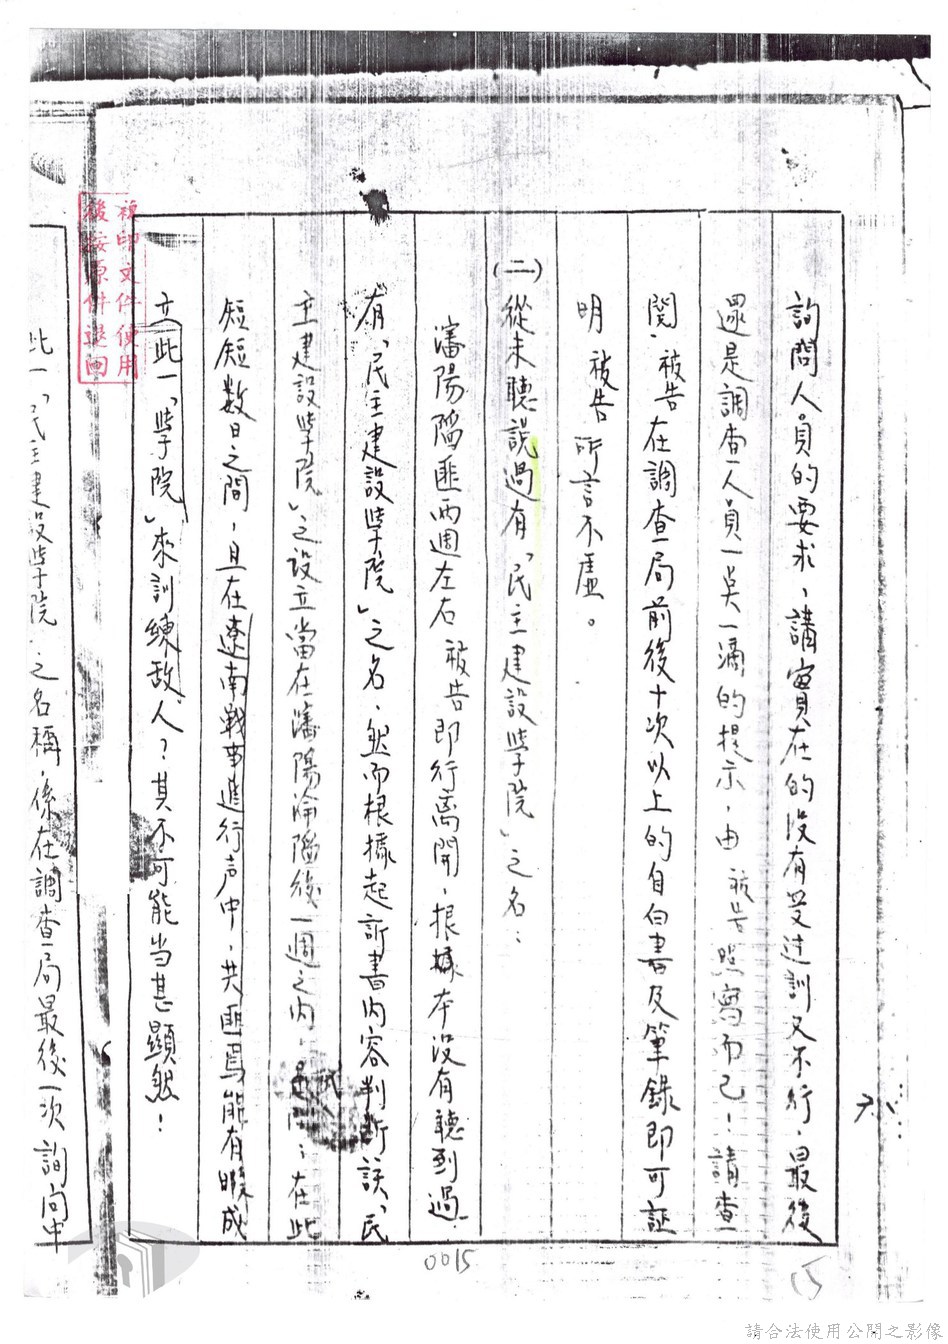 詢問人員的要求，講實在的沒有受过訓又不行，最後
還是調查人員一吳一滴的提示，由 被告照寫而已！請查
閱，被告在調查局前後十次以上的自白書及筆錄即可証
明 被告所言不虛。
(二)從未聽說過有「民主建設學院」之名：
瀋陽陷匪兩週左右 被告即行离開，根據本沒有聽到過
有「民主建設學院」之名，然而根據起訴書內容判斷該「民
主建設學院」之設立當在瀋陽淪陷後一週之內，在此
短短数日之間，且在遼南戰事進行声中，共匪焉能有暇成
立此一「學院」來訓練敌人？其不可能当甚顯然！
此一「民主建設學院」之名稱，係在調查局最後一次詢问中
複印文件使用
後按原件退回
0015
15
請合法使用公開之影像